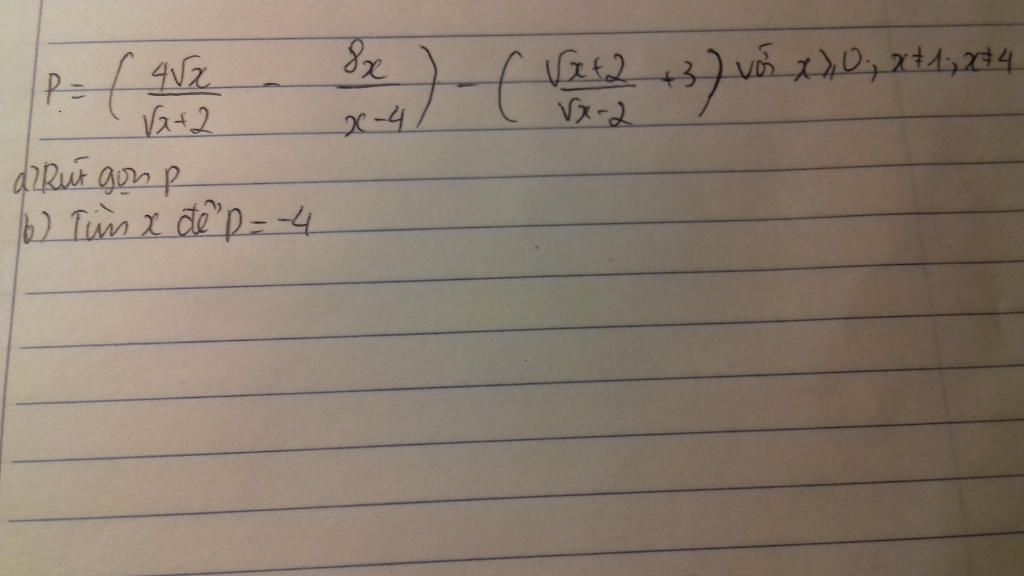 P = ( 4√x / √x+2 - 8x / x-4 ) - ( √x+2 / √x-2 +3 ) với x ⩾ 0 ; x ≠ 1 ; x ≠ 4
a) Rút gọn P
b) Tìm x để P = -4